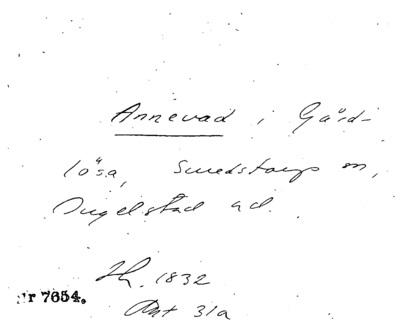 Annevad i Gärd-
lösa, Smedstorps sn,
Ingelstad hd.
Hy. 1832
Nr 7654. Ant 31a